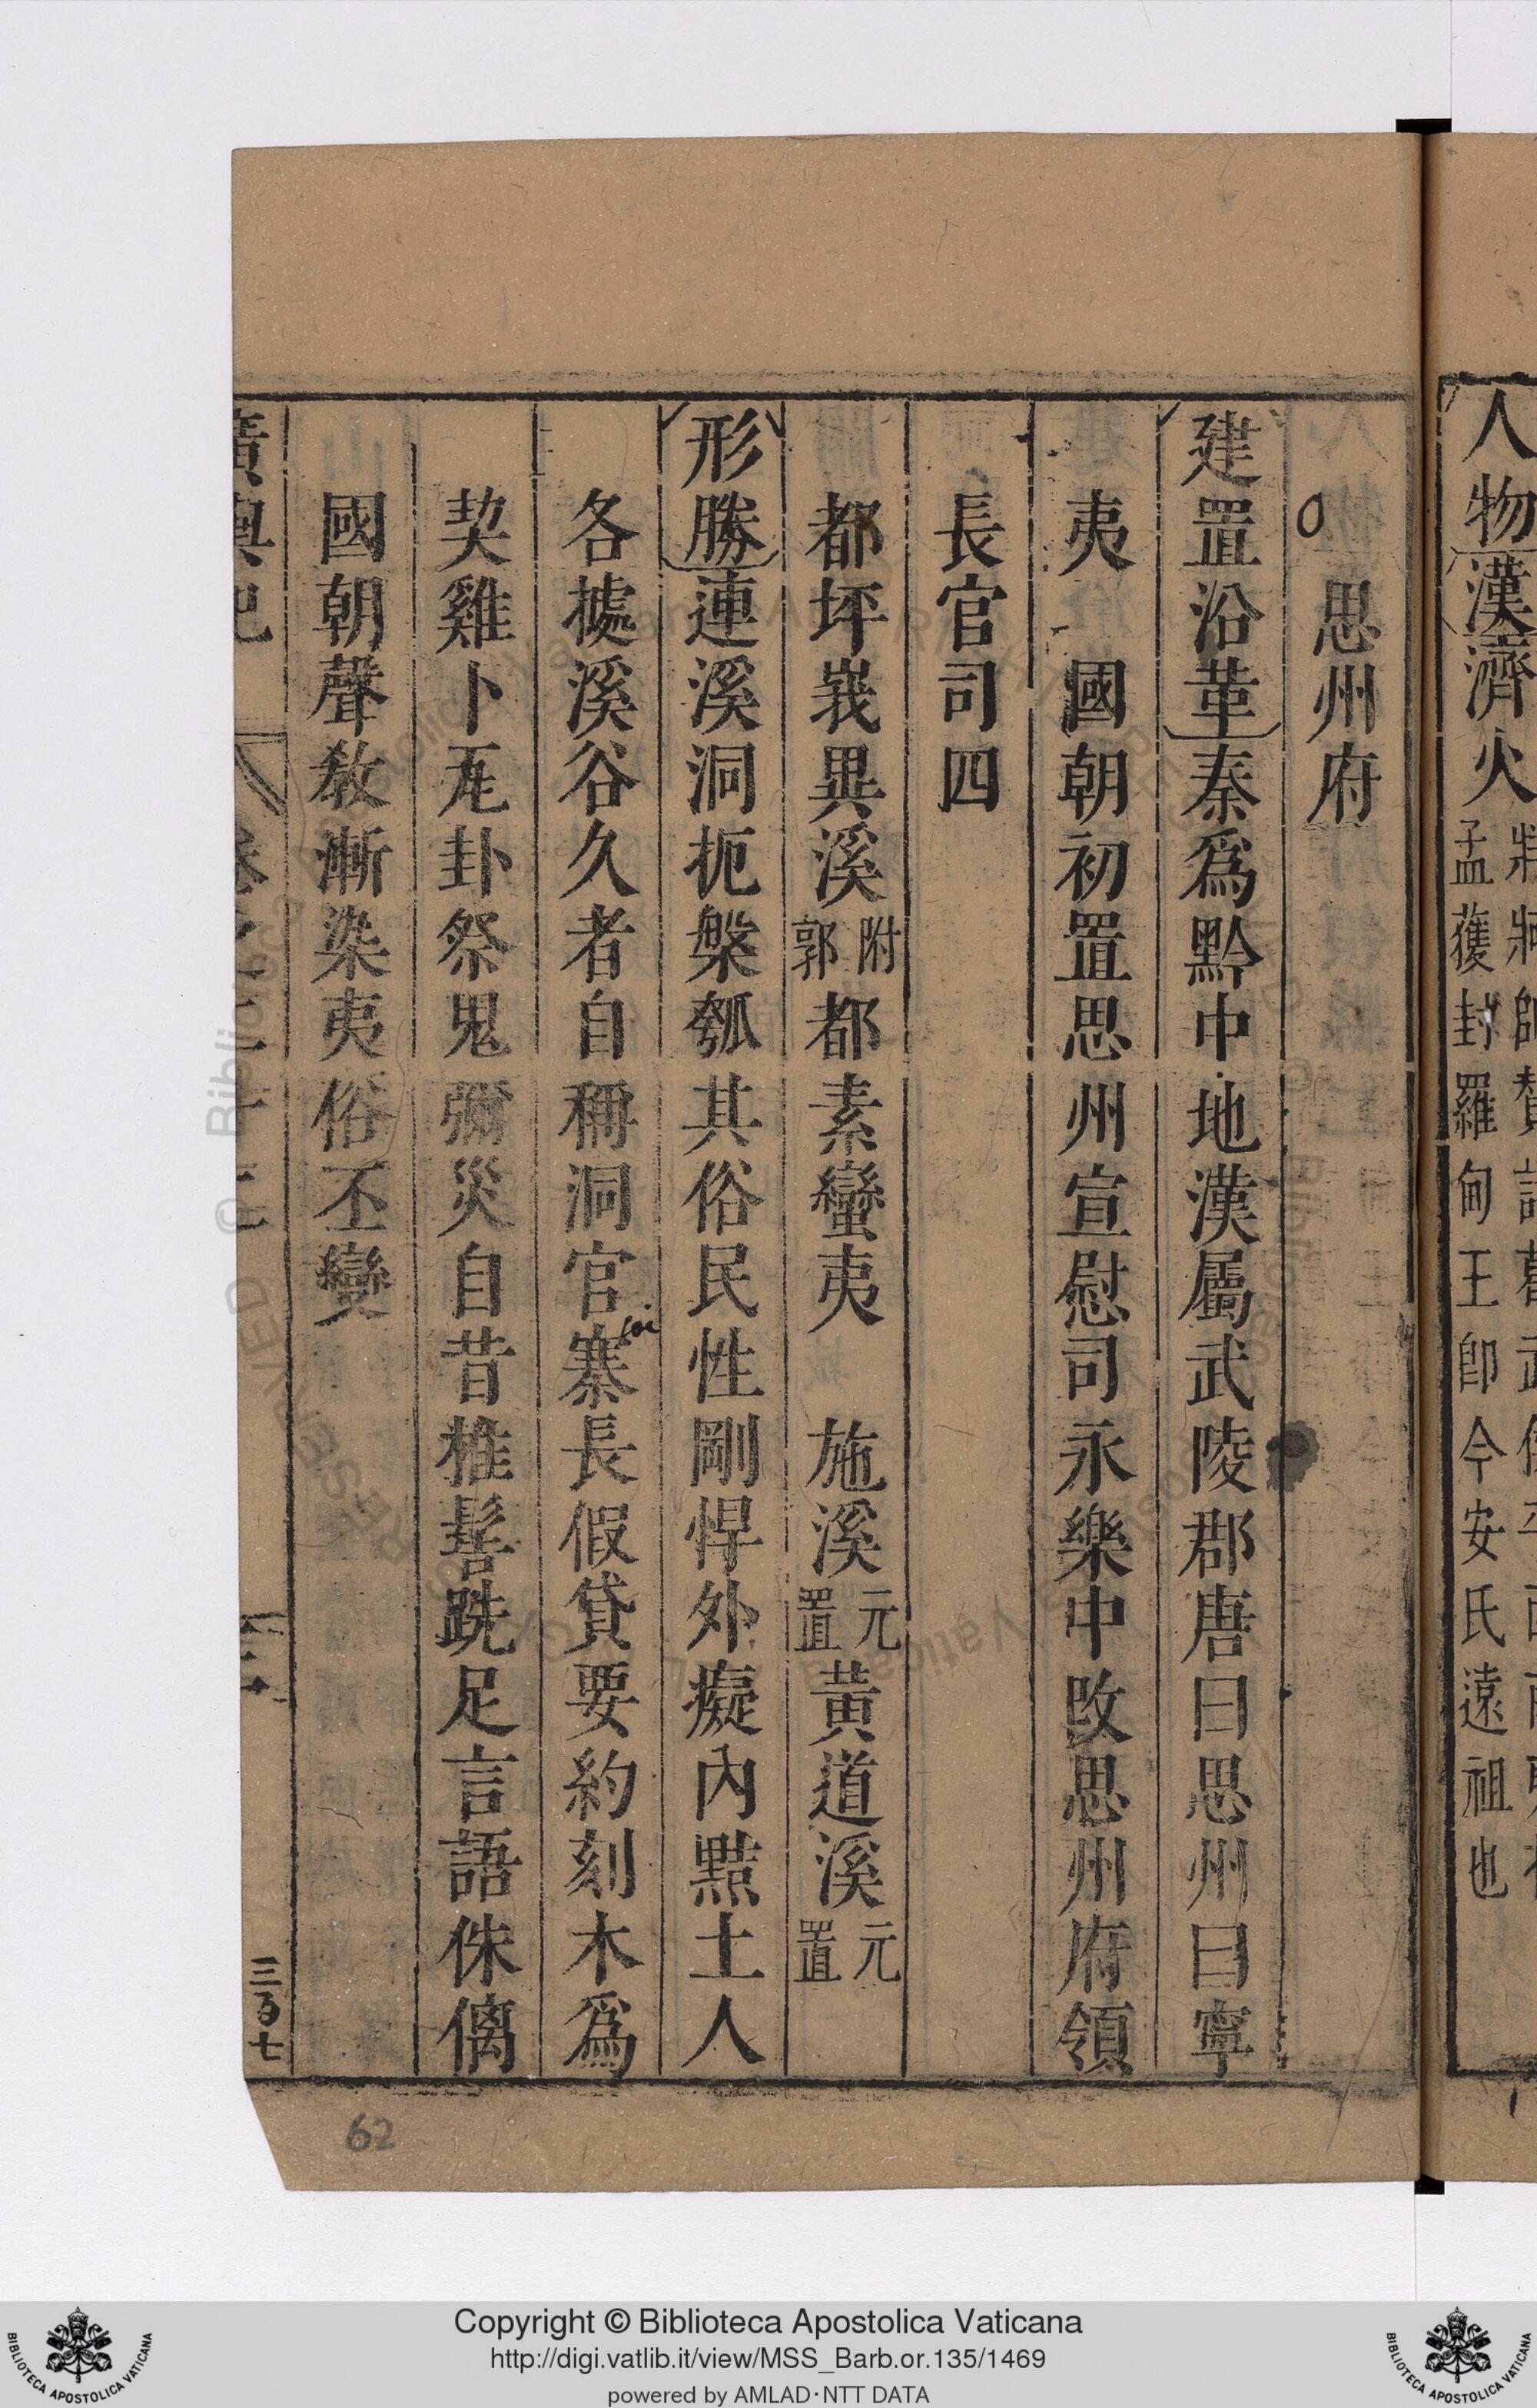 人物漢濟火
孟獲封羅甸王卽今安氏遠祖也
思州府
建置沿革秦爲黔中地漢屬武陵郡唐曰思州曰寧
夷　國朝初置思州宣慰司永樂中改思州府領
長官司四
都坪峩異溪附郭都素蠻夷　施溪元置黃道溪元置
形勝連溪洞扼槃瓠其俗民性剛悍外癡內黠土人
各據溪谷久者自稱洞官寨長假貸要約刻木爲
契雞卜瓦卦祭鬼彌災自昔椎髻跣足言語侏儷
國朝聲教漸染夷俗丕變
三百七
62
Copyright © Biblioteca Apostolica Vaticana
http://digi.vatlib.it/view/MSS_Barb.or.135/1469
powered by AMLAD·NTT DATA
BIBLIOTECA APOSTOLICA VATICANA
BIBLIOTECA APOSTOLICA VATICANA